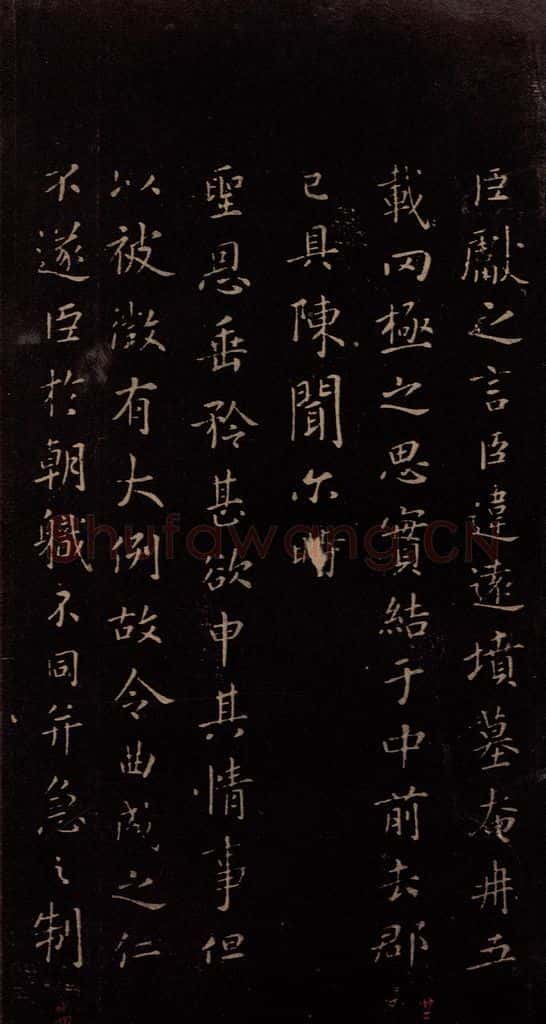 臣獻之言臣違遠墳墓奄冉五
載罔極之思實結于中前去郡
已具陳聞尒時
聖恩垂矜甚欲申其情事但
以被徵有大例故令曲成之仁
不遂臣於朝職不同并急之制
Shufawang.CN
廿二